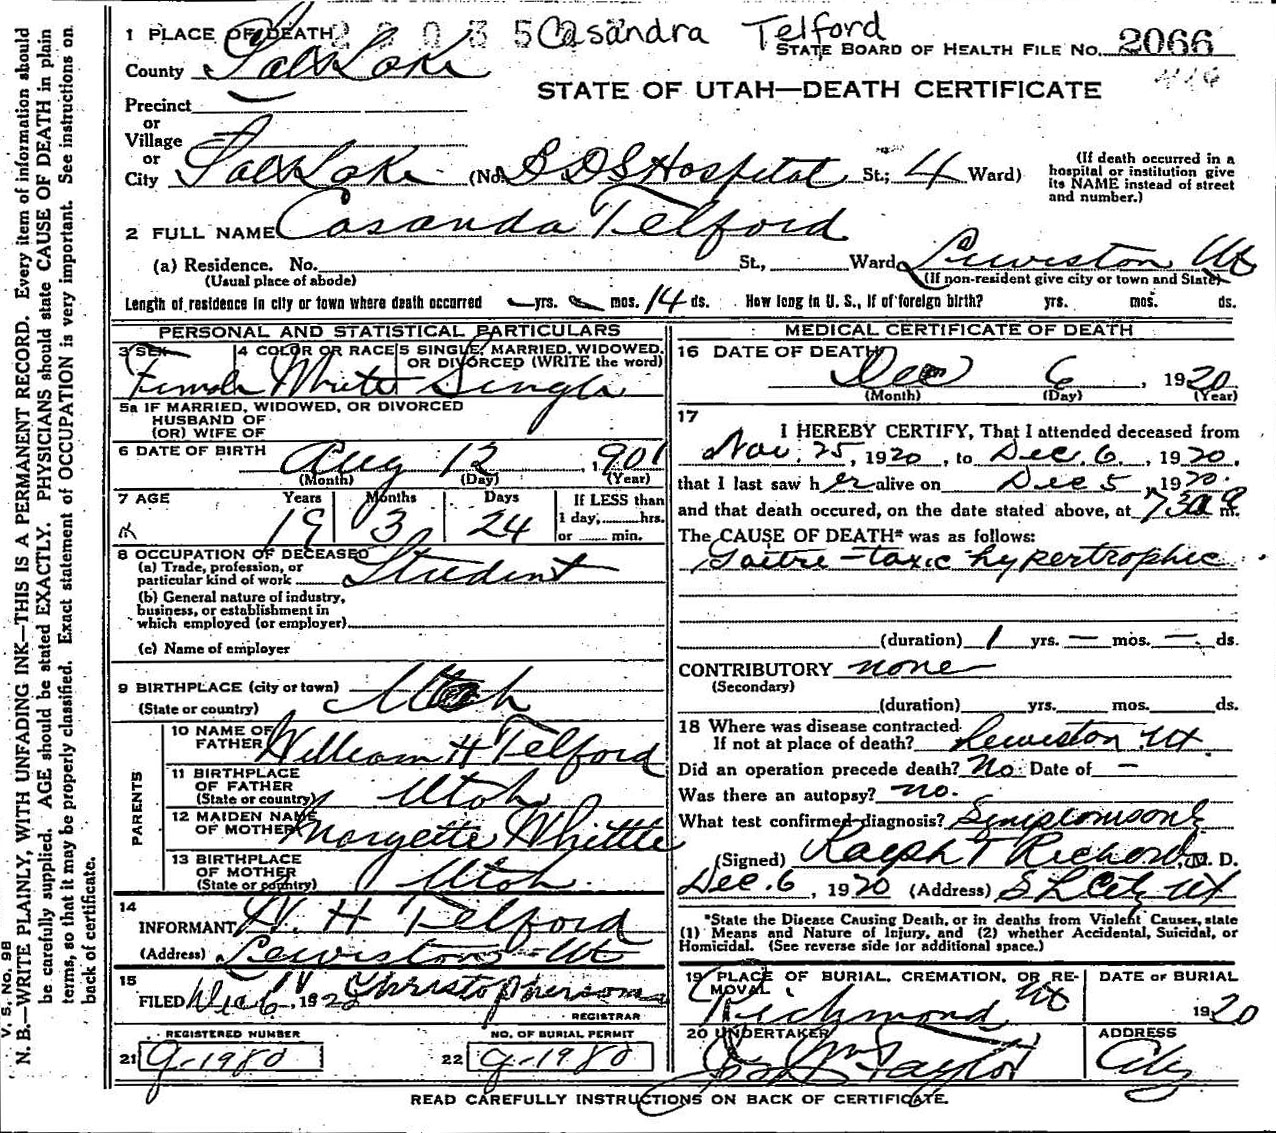 Casandra Telford
1 PLACE OF DEATH 2 2 0 3 5
STATE BOARD OF HEALTH FILE NO. 2066
County Salt Lake
STATE OF UTAH—DEATH CERTIFICATE
Precinct
or
Village
or
City Salt Lake (No. L D S Hospital St.; 4 Ward)
(If death occurred in a hospital or institution give its NAME instead of street and number.)
2 FULL NAME Casanda Telford
(a) Residence. No. St., Ward Lewiston Ut
(Usual place of abode) (If non-resident give city or town and State)
Length of residence in city or town where death occurred yrs. mos. 14 ds. How long in U. S., if of foreign birth? yrs. mos. ds.
PERSONAL AND STATISTICAL PARTICULARS
3 SEX 4 COLOR OR RACE 5 SINGLE, MARRIED, WIDOWED, OR DIVORCED (WRITE the word)
Female White Single
5a IF MARRIED, WIDOWED, OR DIVORCED
HUSBAND OF
(OR) WIFE OF
6 DATE OF BIRTH Aug 12, 1901
(Month) (Day) (Year)
7 AGE Years Months Days If LESS than
19 3 24 1 day, hrs.
or min.
8 OCCUPATION OF DECEASED
(a) Trade, profession, or
particular kind of work Student
(b) General nature of industry,
business, or establishment in
which employed (or employer)
(c) Name of employer
9 BIRTHPLACE (city or town) Utah
(State or country)
PARENTS
10 NAME OF
FATHER William H Telford
11 BIRTHPLACE
OF FATHER
(State or country) Utah
12 MAIDEN NAME
OF MOTHER Margette Whittle
13 BIRTHPLACE
OF MOTHER
(State or country) Utah
14
INFORMANT W. H Telford
(Address) Lewiston Ut
15
FILED Dec 6, 1920 Christopherson
REGISTRAR
REGISTERED NUMBER NO. OF BURIAL PERMIT
21 G-1980 22 G-1980
MEDICAL CERTIFICATE OF DEATH
16 DATE OF DEATH
Dec 6, 1920
(Month) (Day) (Year)
17
I HEREBY CERTIFY, That I attended deceased from
Nov. 25, 1920, to Dec. 6, 1920,
that I last saw her alive on Dec 5, 1920.
and that death occured, on the date stated above, at 730 a m.
The CAUSE OF DEATH* was as follows:
Goitre - toxic hypertrophic
(duration) 1 yrs. — mos. — ds.
CONTRIBUTORY none
(Secondary)
(duration) yrs. mos. ds.
18 Where was disease contracted
If not at place of death? Lewiston Ut.
Did an operation precede death? No. Date of —
Was there an autopsy? no.
What test confirmed diagnosis?
(Signed) Ralph T Richards, M. D.
Dec. 6, 1920 (Address) S L City Ut
*State the Disease Causing Death, or in deaths from Violent Causes, state
(1) Means and Nature of Injury, and (2) whether Accidental, Suicidal, or
Homicidal. (See reverse side for additional space.)
19 PLACE OF BURIAL, CREMATION, OR REMOVAL DATE OF BURIAL
Richmond Ut 1920
20 UNDERTAKER ADDRESS
Jos Wm Taylor City
READ CAREFULLY INSTRUCTIONS ON BACK OF CERTIFICATE.
V. S. No. 9B
N. B.—WRITE PLAINLY, WITH UNFADING INK—THIS IS A PERMANENT RECORD. Every item of information should
be carefully supplied. AGE should be stated EXACTLY. PHYSICIANS should state CAUSE OF DEATH in plain
terms, so that it may be properly classified. Exact statement of OCCUPATION is very important. See instructions on
back of certificate.